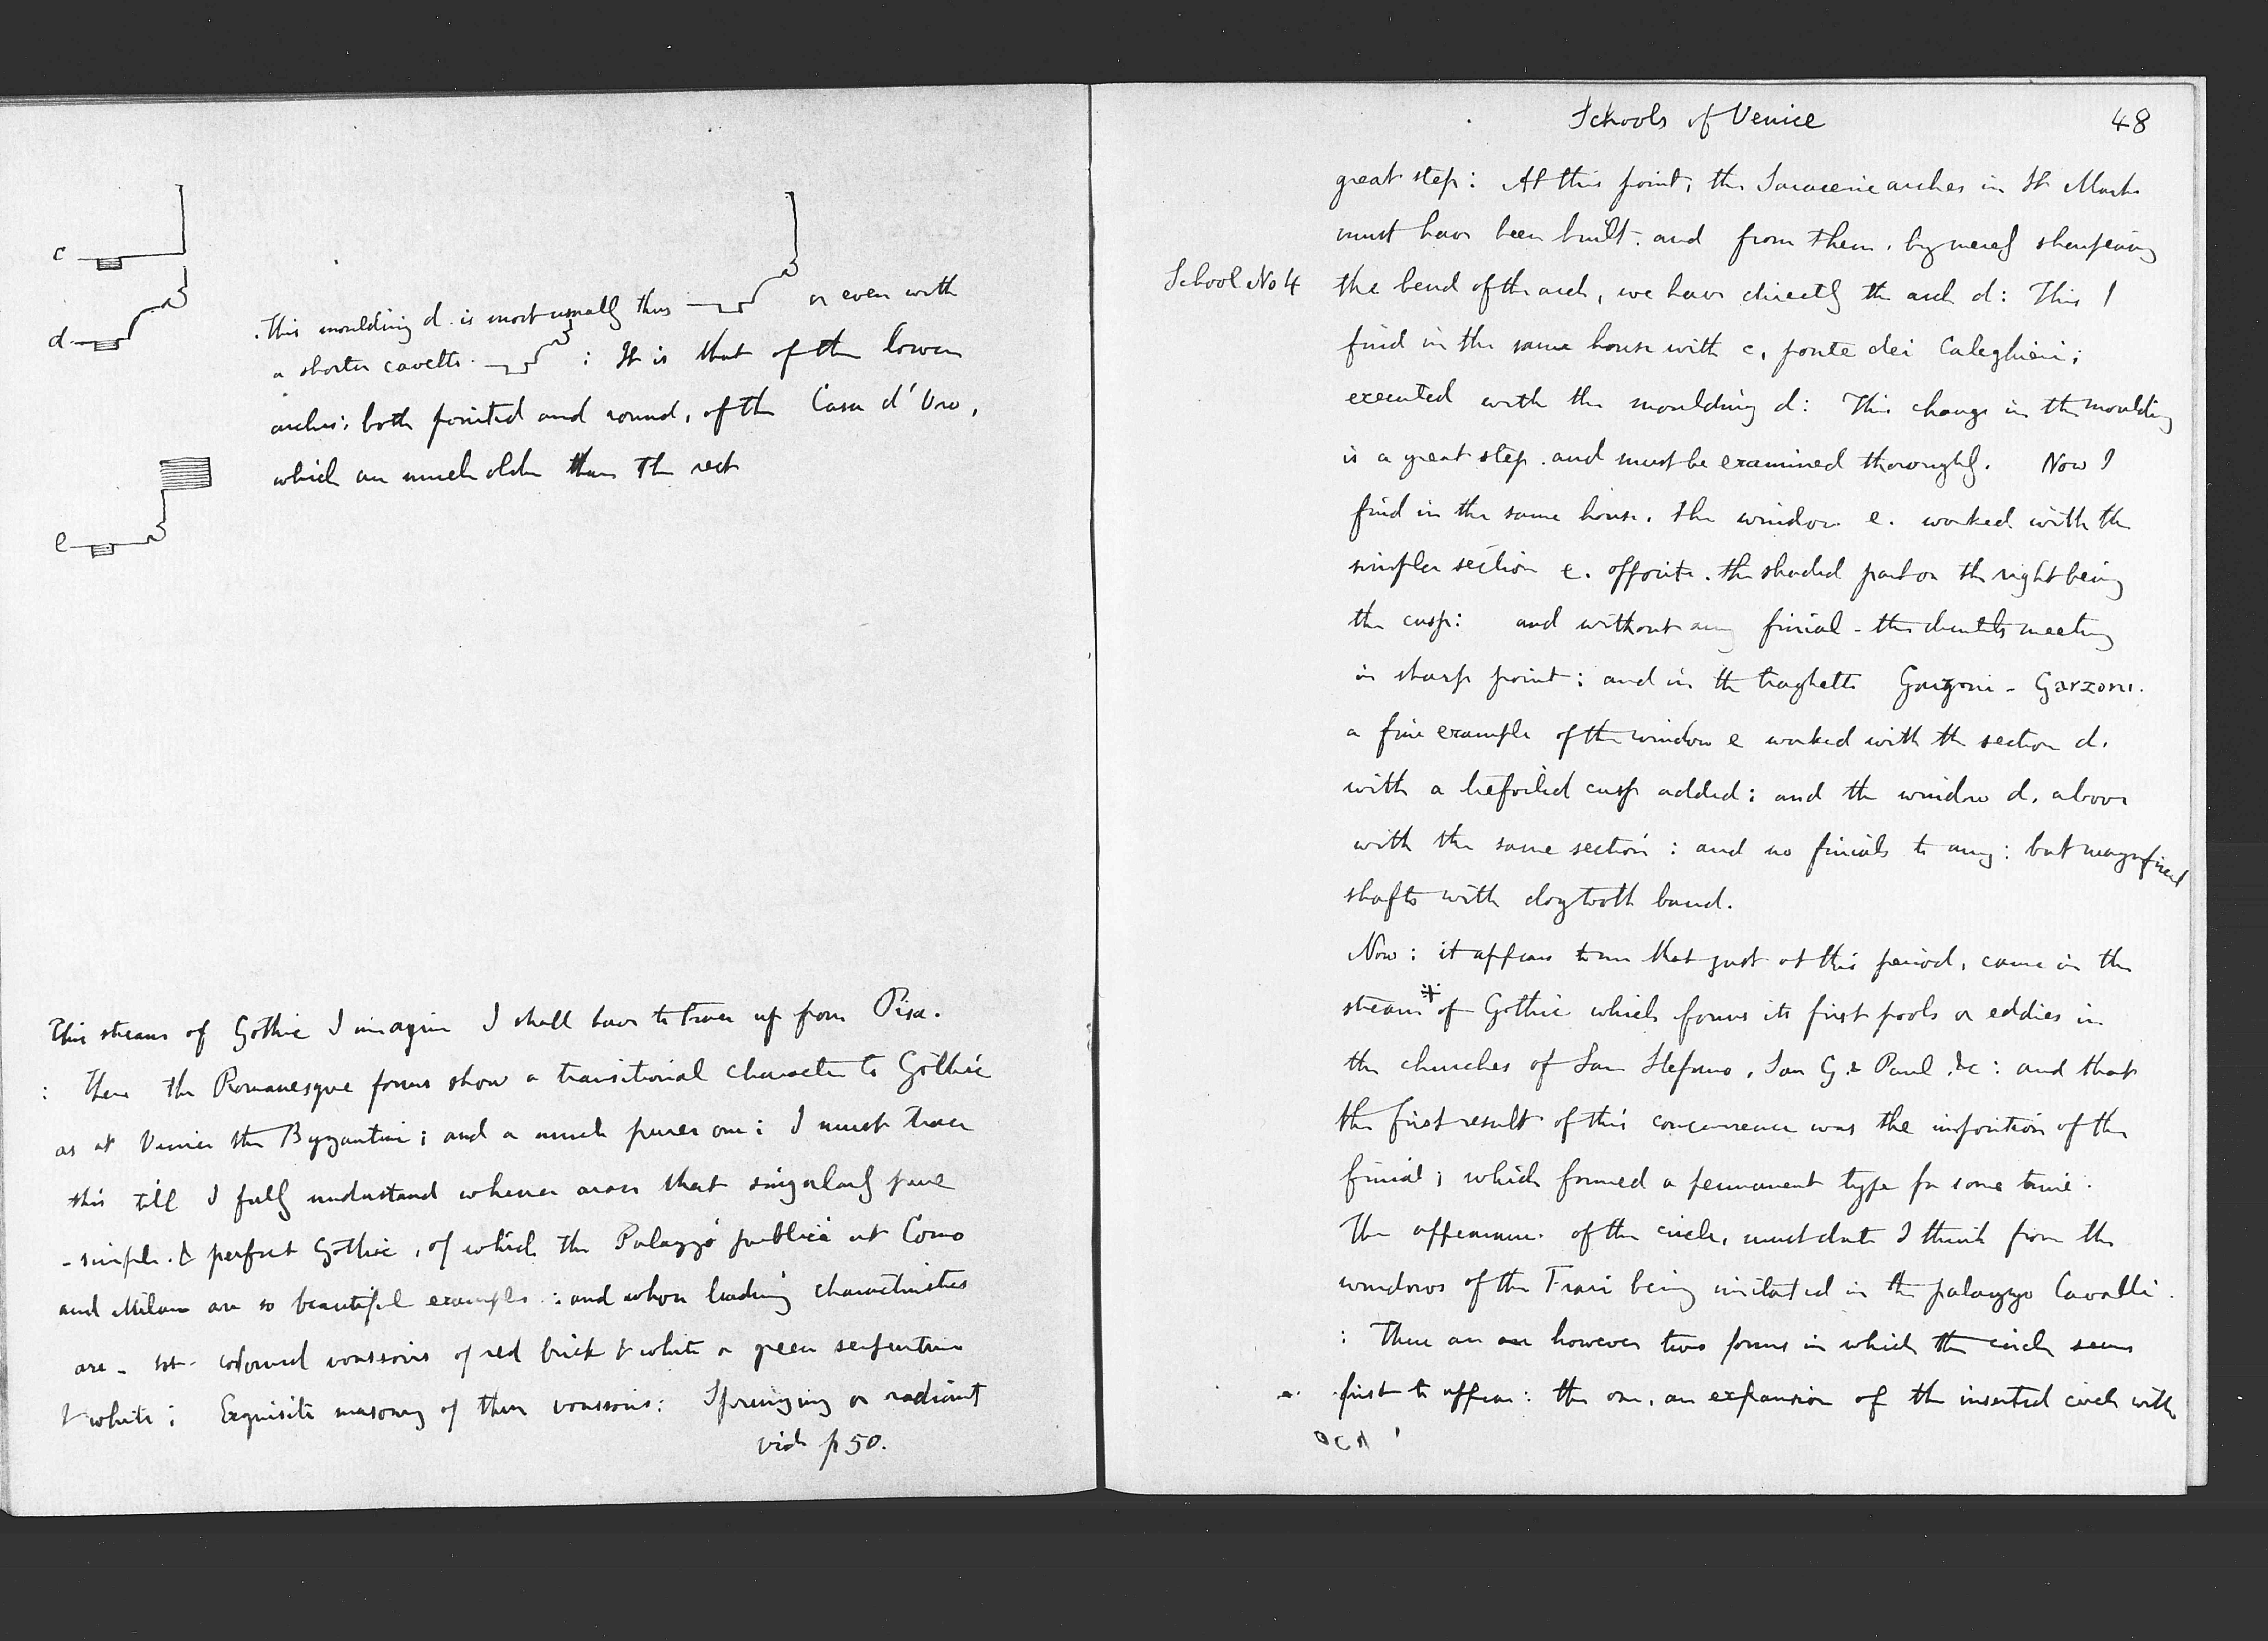 c
d
This moulding d. is most usually thus or even with
a shorter cavetto : It is that of the lower
arches; both pointed and round, of the Casa d'Oro,
which are much older than the rest
e
This stream of Gothic I imagine I shall have to trace up from Pisa.
: There the Romanesque forms show a transitional character to Gothic
as at Venice the Byzantine; and a much purer one: I must trace
this till I fully understand whence arose that singularly pure
- simple. & perfect Gothic, of which the Palazzo publici at Como
and Milan are so beautiful examples : and whose leading characteristics
are - 1st. coloured voussoirs of red brick & white or green serpentine
& white; Exquisite masonry of these voussoirs: Springing or radiant
vide p 50.
Schools of Venice
48
great step: At this point, the Saracenic arches in St Marks
must have been built. and from them, by merely sharpening
School No 4
the bend of the arch, we have directly the arch d: This I
find in the same house with c, ponte dei Caleghieri;
executed with the moulding d: This change in the moulding
is a great step. and must be examined thoroughly. Now I
find in the same house, the window e. worked with the
simpler section e. opposite. the shaded part on the right being
the cusp: and without any finial - the dentils meeting
in sharp point: and in the traghetto Garzoni - Garzoni.
a fine example of the window e worked with the section d.
with a trefoiled cusp added: and the window d. above
with the same section: and no finials to any: but magnificent
shafts with dogtooth band.
Now: it appears to me that just at this period, came in the
stream * of Gothic which forms its first pools or eddies in
the churches of San Stefano, San G. & Paul. &c: and that
the first result of this concurrence was the imposition of the
finial; which formed a permanent type for some time.
The appearance of the circle, must date I think from the
windows of the Frari being imitated in the palazzo Cavalli.
: There are an however two forms in which the circle seems
a. first to appear: the one, an expansion of the inserted circle with